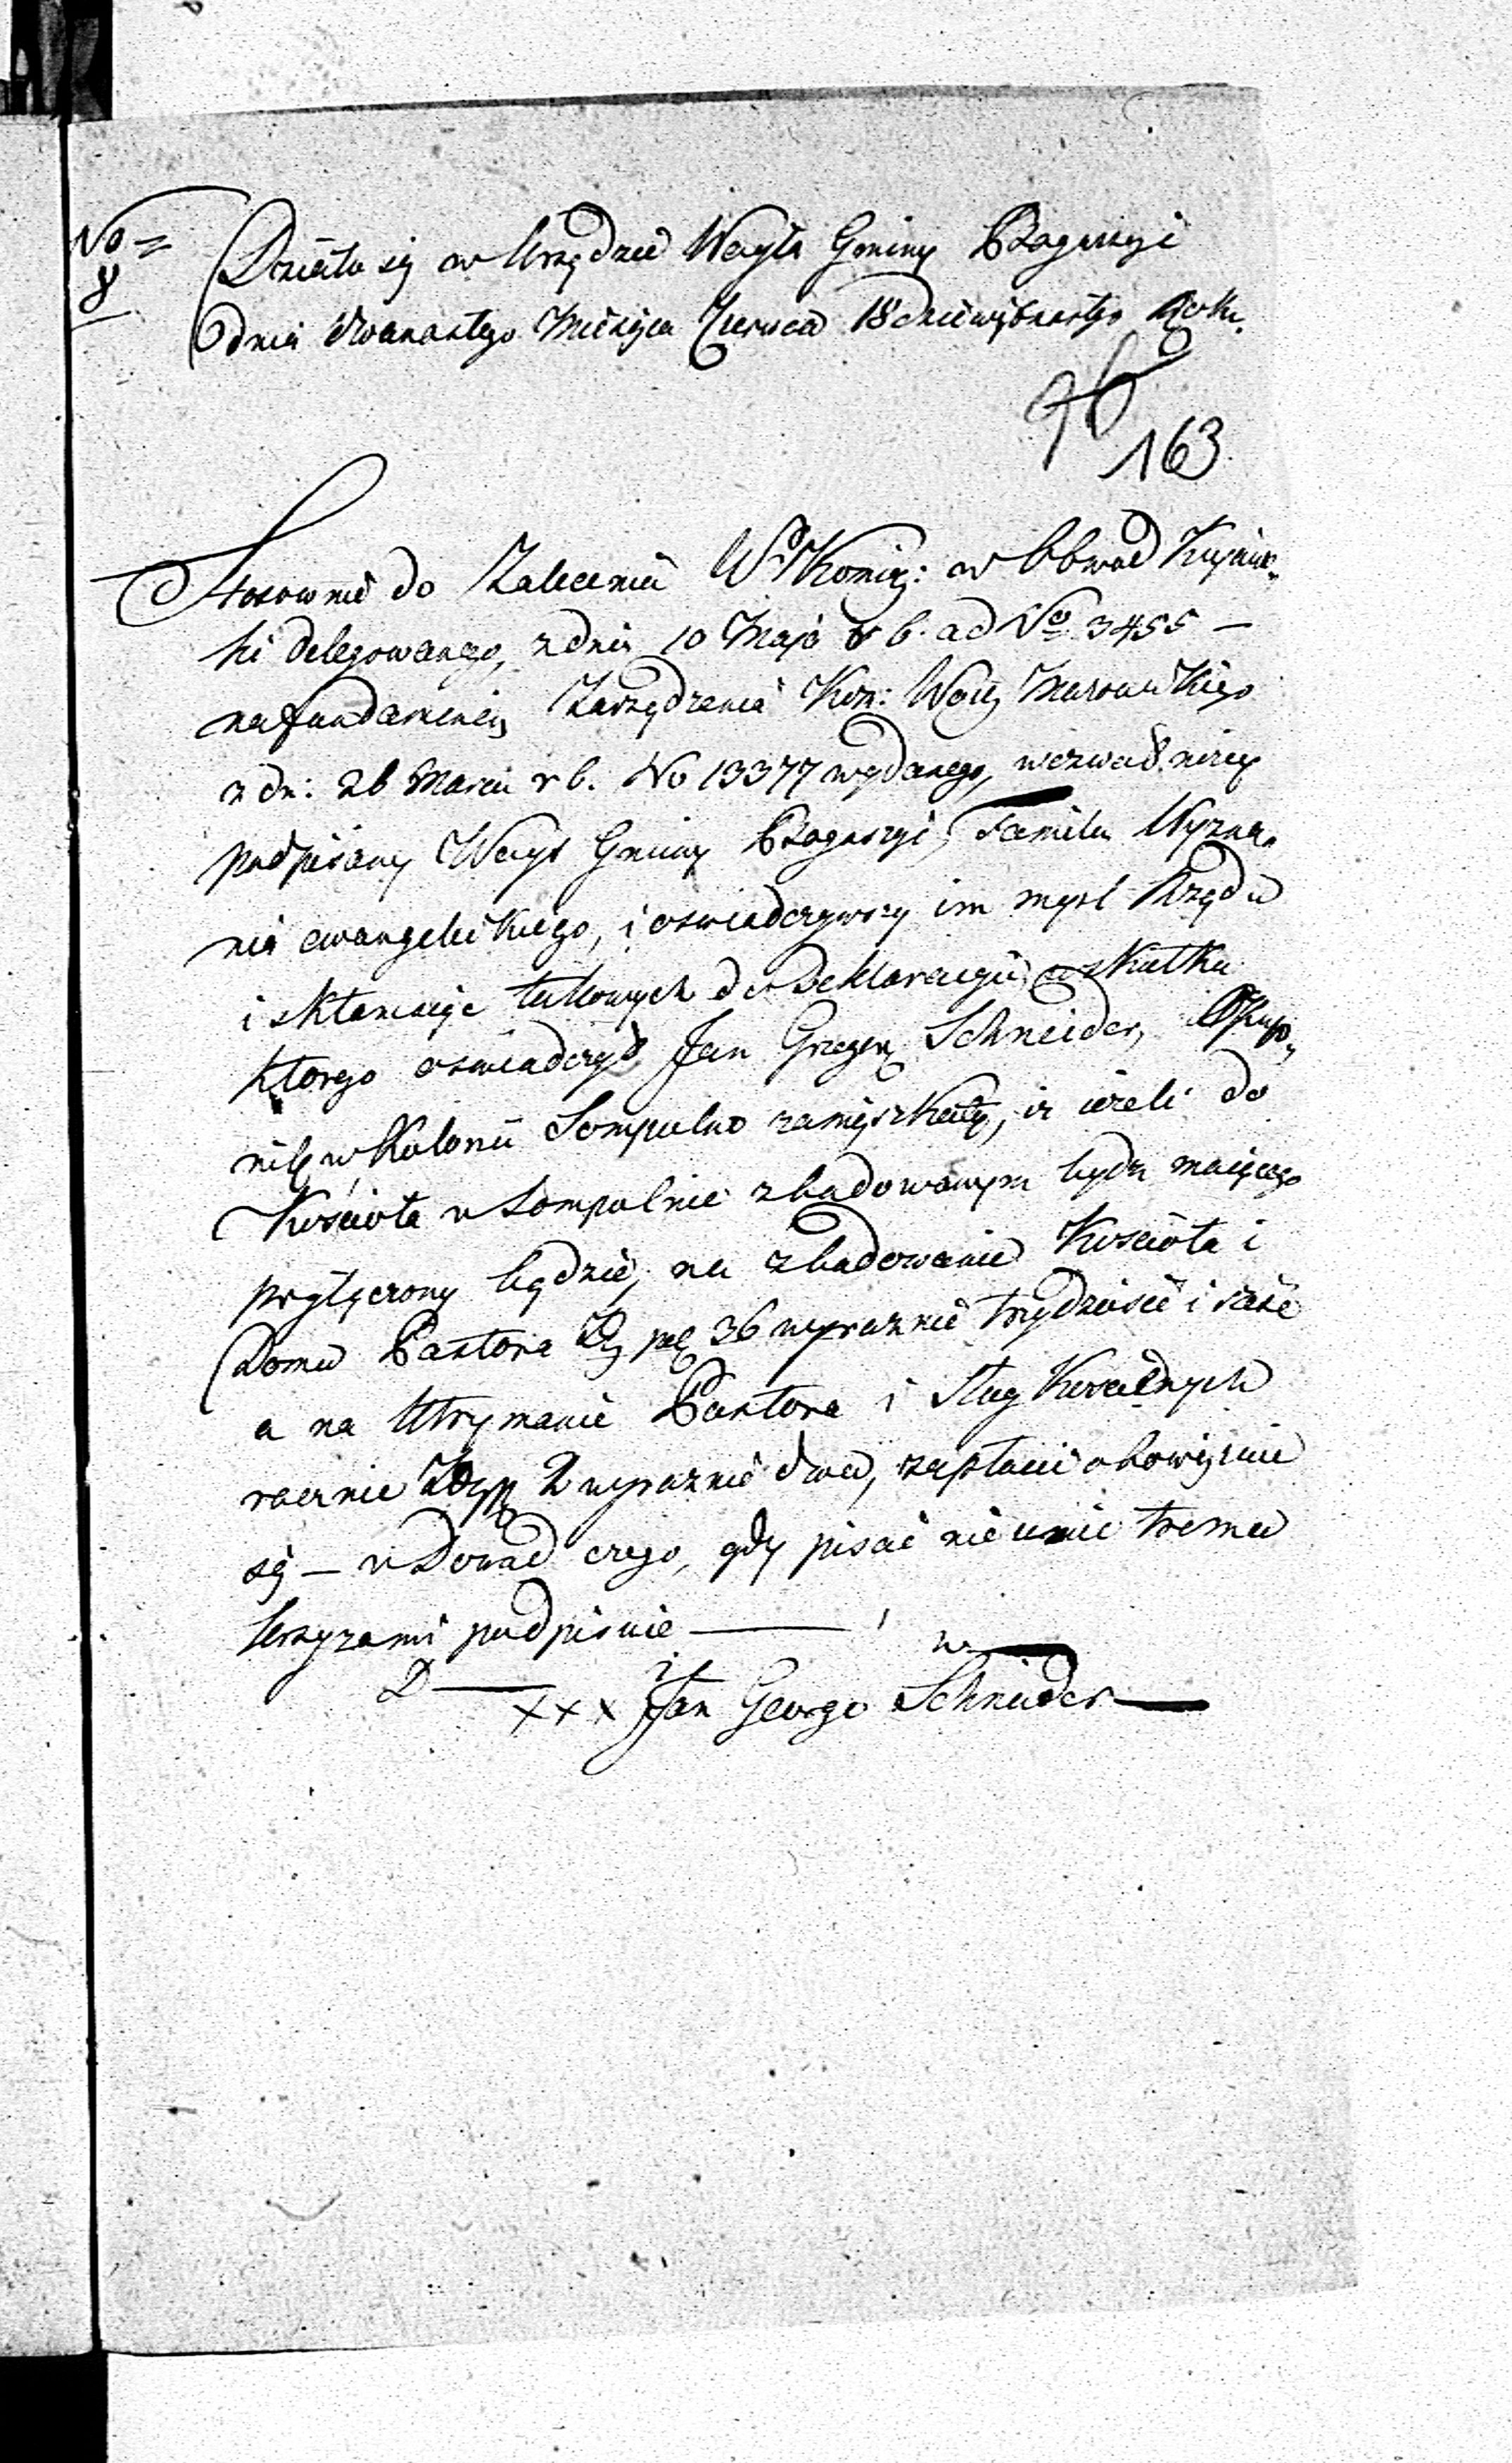 No
8
Działo się w Urzędzie Woyta Gminy
dnia dwunastego Miesiąca Czerwca 18 dziewiętnastego Roku.
163
Stosownie do Zalecenia W Komis: w Obwod Kujaw-
ski delegowanego, z dnia 10 Maja r b. ad No 3455 —
na fundamencie Zarządzenia Kom: Woie Mazowieckiego
z dn: 26 Marca r b. No 13377 wydanego, wezwał niżey
podpisany Woyt Gminy Familie Wyzna-
nia ewangelickiego, i oswiadczywszy im mysl Rządu
i skłaniaiąc do Deklaracyi w skutku
ktorego oswiadczył Jan Grzegorz Schneider, Okup-
nik w Kolonii Sompulno zamieszkały, iż ieżeli do
Kościoła w Sompolnie zbudowanym bydź maiącego
przyłączony będzie, na zbudowanie Kościoła i
Domu Pastora Zł pol 36 wyraznie trzydzieście i sześć
a na Utrzymanie Pastora i Sług Koscielnych
rocznie Złp 2 wyraznie dwa, zapłacić obowięzuie
się — w Dowod czego, gdy pisać nie umie trzema
krzyzami podpisuie —
xxx Jan George Schneider —